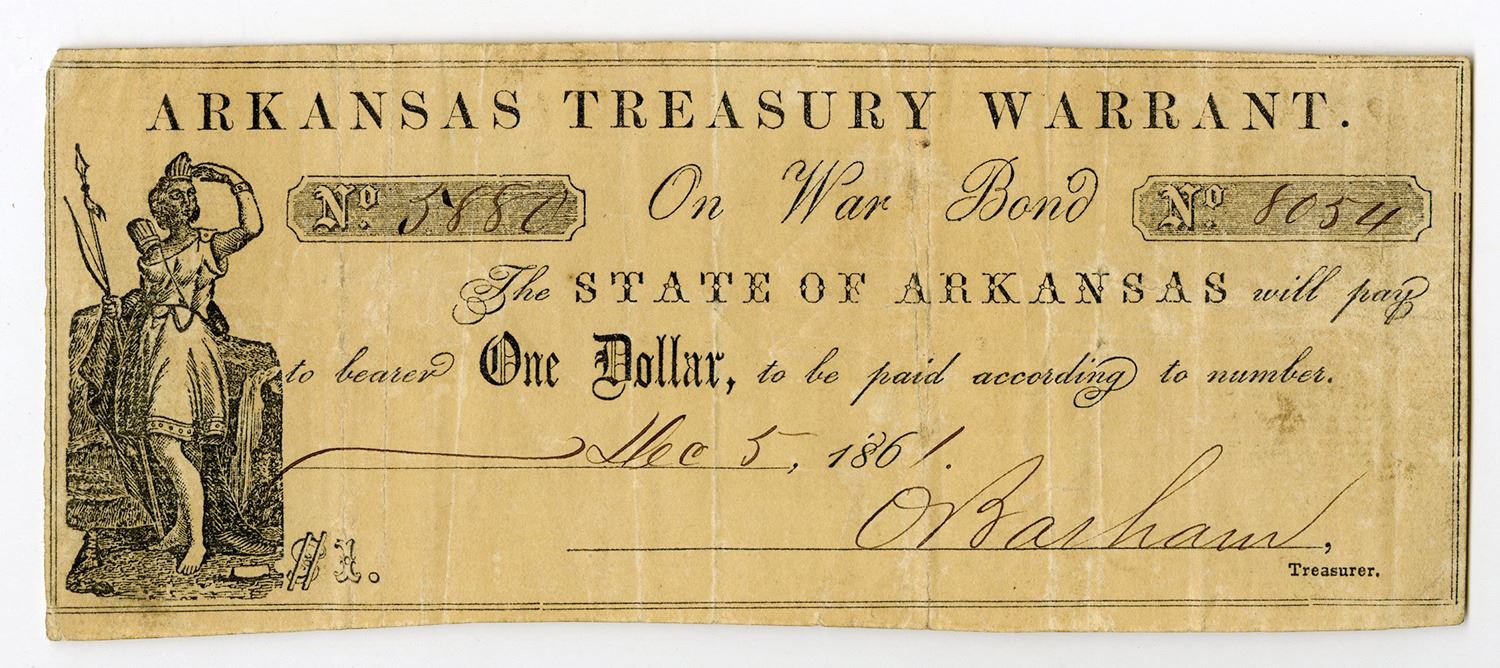 ARKANSAS TREASURY WARRANT.
No 5880 On War Bond No 8054
The STATE OF ARKANSAS will pay
to bearer One Dollar, to be paid according to number.
Dec 5, 1861.
O Basham,
Treasurer.
$1.